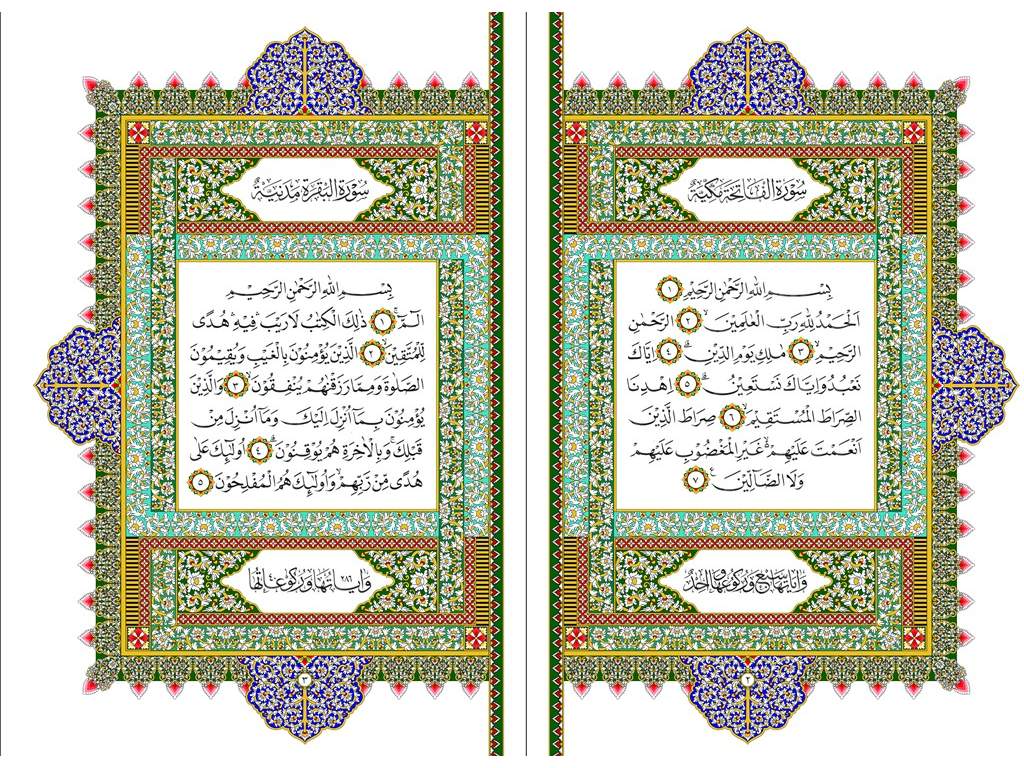 سُوْرَةُ الْفَاتِحَةِ مَكِّيَّةٌ
بِسْمِ اللّٰهِ الرَّحْمٰنِ الرَّحِيْمِ ١
اَلْحَمْدُ لِلّٰهِ رَبِّ الْعٰلَمِيْنَ ۙ ٢ الرَّحْمٰنِ
الرَّحِيْمِ ۙ ٣ مٰلِكِ يَوْمِ الدِّيْنِ ۗ ٤ اِيَّاكَ
نَعْبُدُ وَاِيَّاكَ نَسْتَعِيْنُ ۗ ٥ اِهْدِنَا
الصِّرَاطَ الْمُسْتَقِيْمَ ۙ ٦ صِرَاطَ الَّذِيْنَ
اَنْعَمْتَ عَلَيْهِمْ ۙ غَيْرِ الْمَغْضُوْبِ عَلَيْهِمْ
وَلَا الضَّآلِّيْنَ ٧
وَاٰيَاتُهَا سَبْعٌ وَرُكُوْعُهَا وَاحِدٌ
٢
سُوْرَةُ الْبَقَرَةِ مَدَنِيَّةٌ
بِسْمِ اللّٰهِ الرَّحْمٰنِ الرَّحِيْمِ
الٓمّٓ ۚ ١ ذٰلِكَ الْكِتٰبُ لَا رَيْبَ ۛ فِيْهِ ۛ هُدًى
لِّلْمُتَّقِيْنَ ۙ ٢ الَّذِيْنَ يُؤْمِنُوْنَ بِالْغَيْبِ وَيُقِيْمُوْنَ
الصَّلٰوةَ وَمِمَّا رَزَقْنٰهُمْ يُنْفِقُوْنَ ۙ ٣ وَالَّذِيْنَ
يُؤْمِنُوْنَ بِمَآ اُنْزِلَ اِلَيْكَ وَمَآ اُنْزِلَ مِنْ
قَبْلِكَ ۚ وَبِالْاٰخِرَةِ هُمْ يُوْقِنُوْنَ ۗ ٤ اُولٰٓئِكَ عَلٰى
هُدًى مِّنْ رَّبِّهِمْ ۙ وَاُولٰٓئِكَ هُمُ الْمُفْلِحُوْنَ ٥
٢٨٦
٣